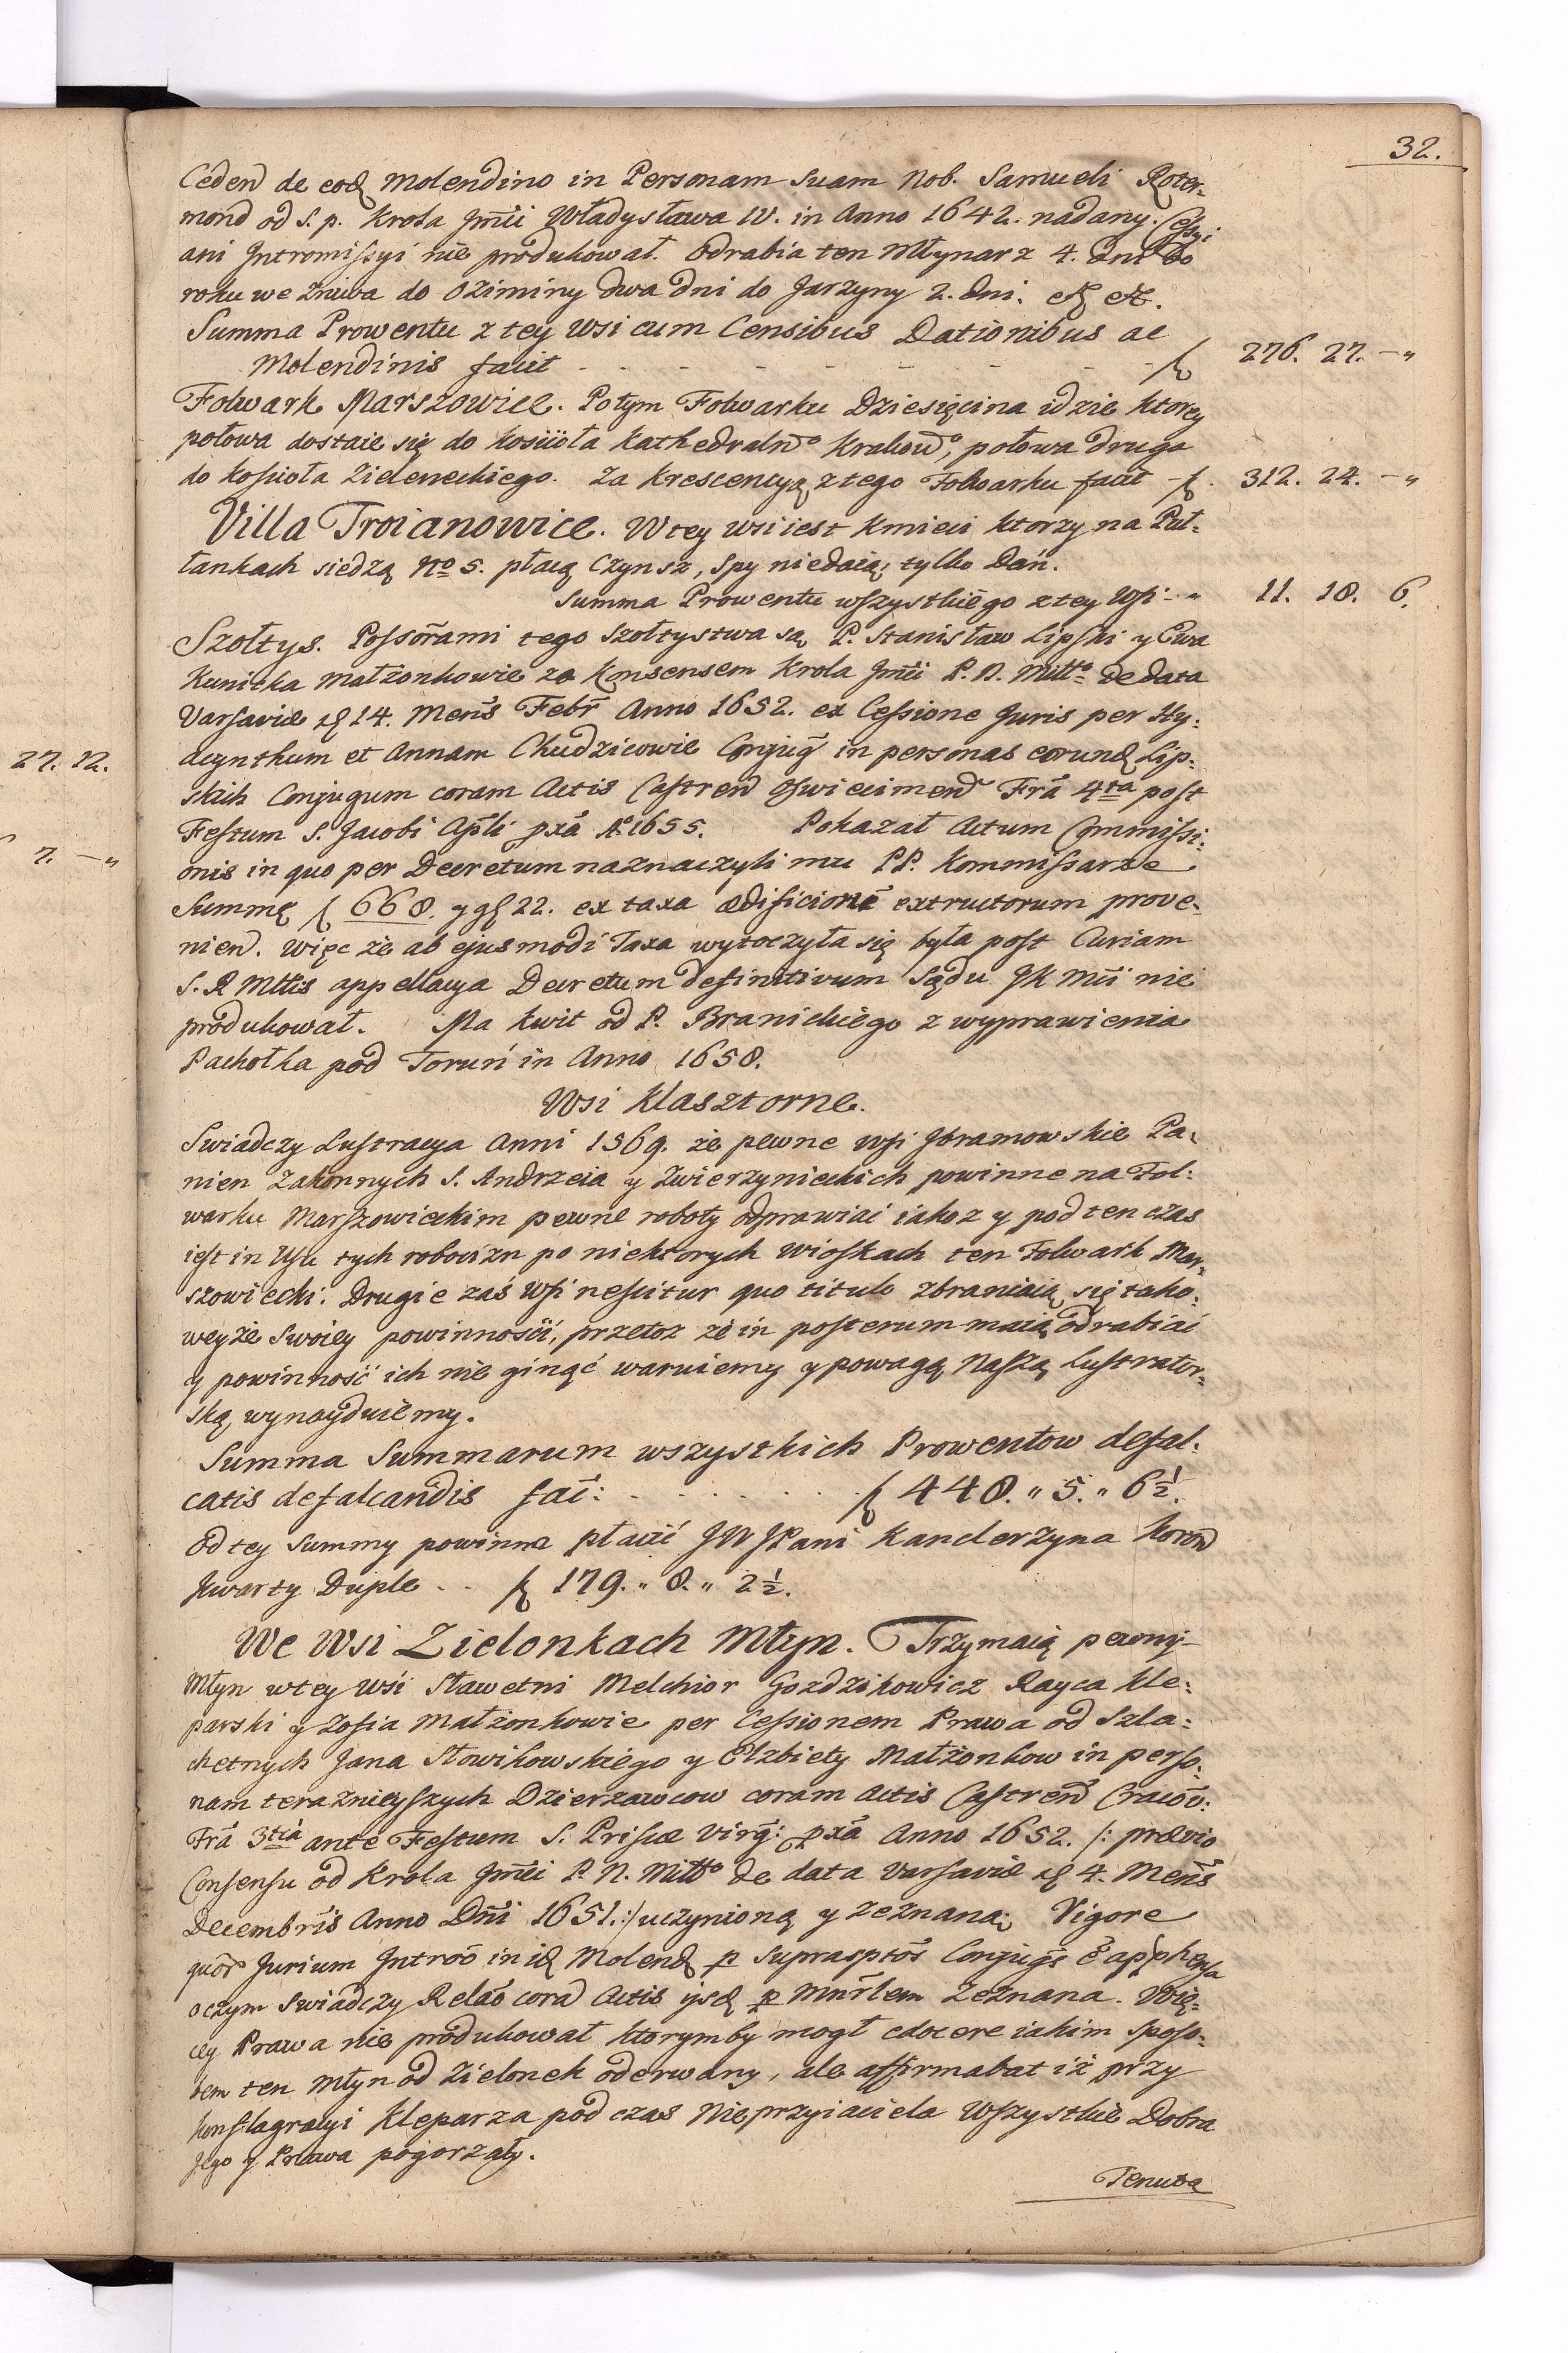 32.
Ceden de eod Molendino in Personam suam Nob. Samueli Roter-
mond od S. p. Krola Jmci Władysława IV. in Anno 1642. nadany. Cessyi
ani Intromissyi nie produkował. Odrabia ten Młynarz 4. dni do
roku we Zniwa do Oziminy dwa dni do Jarzyny 2. dni.
Summa Prowentu z tey Wsi cum Censibus Dationibus ac
Molendinis facit - - - - - - - - f 276. 27. — „
Folwark Marszowice. Potym Folwarku Dziesięcina idzie ktorey
połowa dostaie się do Kościoła Kathedraln° Krakow°, połowa druga
do Kościoła Zieleneckiego. Za Krescencyą z tego Folwarku facit - f. 312. 24. — „
Villa Troianowice. W tey wsi iest Kmieci ktorzy na Puł-
łankach siedzą No 5. płacą Czynsz, Spy niedaią tylko Dań.
Summa Prowentu wszystkiego z tey Wsi - „ 11. 18. 6.
Szołtys. Possorami tego Szołtystwa są P. Stanisław Lipski y Ewa
Kunicka Małżonkowie za Konsensem Krola Jmci P. N. Miłł° de data
Varsaviæ d 14. Mens Febr Anno 1652. ex Cessione Juris per Hy-
acynthum et Annam Chudzicowie Conjug in personas eorund Lip-
skich Conjugum coram Actis Castren Oswiecimen Fra 4ta post
Festum S. Jacobi Apli pxa A° 1655. Pokazał Actum Commissi-
onis in quo per Decretum naznaczyli mu PP. Kommissarze
Summę f 668. y gr 22. ex taxa ædificiorū extructorum prove-
nien. Więc że ab ejusmodi Taxa wytoczyła się była post Curiam
S. R Mttis appellacya Decretum definitivum Sądu JK Mci nie
produkował. Ma kwit od P. Branickiego z wyprawienia
Pachołka pod Toruń in Anno 1658.
Wsi Klasztorne.
Swiadczy Lustracya Anni 1569. że pewne Wsi Ibramowskie Pa-
nien Zakonnych S. Andrzeia y Zwierzynieckich powinne na Fol-
warku Marszowieckim pewne roboty odprawiać iakoż y pod ten czas
iest in Usu tych robocizn po niektorych Wioskach ten Folwark Mar-
szowiecki. Drugie zaś Wsi nescitur quo titulo zbraniaią się tako-
weyże Swoiey powinności, przetoż że in posterum maią odrabiać
y powinność ich nie ginąć waruiemy y powagą Naszą Lustrator-
ską wynayduiemy.
Summa Summarum wszystkich Prowentow defal-
catis defalcandis faci: - - - - - - f 448. „ 5. „ 6½.
Od tey Summy powinna płacić JW JPani Kanclerzyna Koron
Kwarty Duple - - f 179. „ 8. „ 2½.
We Wsi Zielonkach Młyn. Trzymaią pewny
Młyn w tey Wsi Sławetni Melchior Gozdzikowicz Rayca Kle-
parski y Zofia Małżonkowie per Cessionem Prawa od Szla-
chetnych Jana Słowikowskiego y Elzbiety Małżonkow in perso-
nam terazniejszych Dzierzawcow coram Actis Castren Cracov:
Fra 3tia ante Festum S. Priscæ Virg: pxa Anno 1652. /: prævio
Consensu od Krola Jmci P. N. Miłł° de data Varsaviæ d 4. Mens
Decembris Anno Dni 1651. :/ uczynioną y zeznaną. Vigore
quor Jurium Intro in id Molend p suprasptos Conjugs e apphensa
o czym swiadczy Relao cora Actis ijsd p Mnrlem Zeznana. Wię-
cey Prawa nie produkował ktorymby mogł edocere iakim sposo-
bem ten Młyn od Zielonek oderwany, ale affirmabat iż przy
konflagracyi Kleparza pod czas Nieprzyiaciela Wszystkie Dobra
Jego y Prawa pogorzały.
Tenuta
27. 12.
7. — „